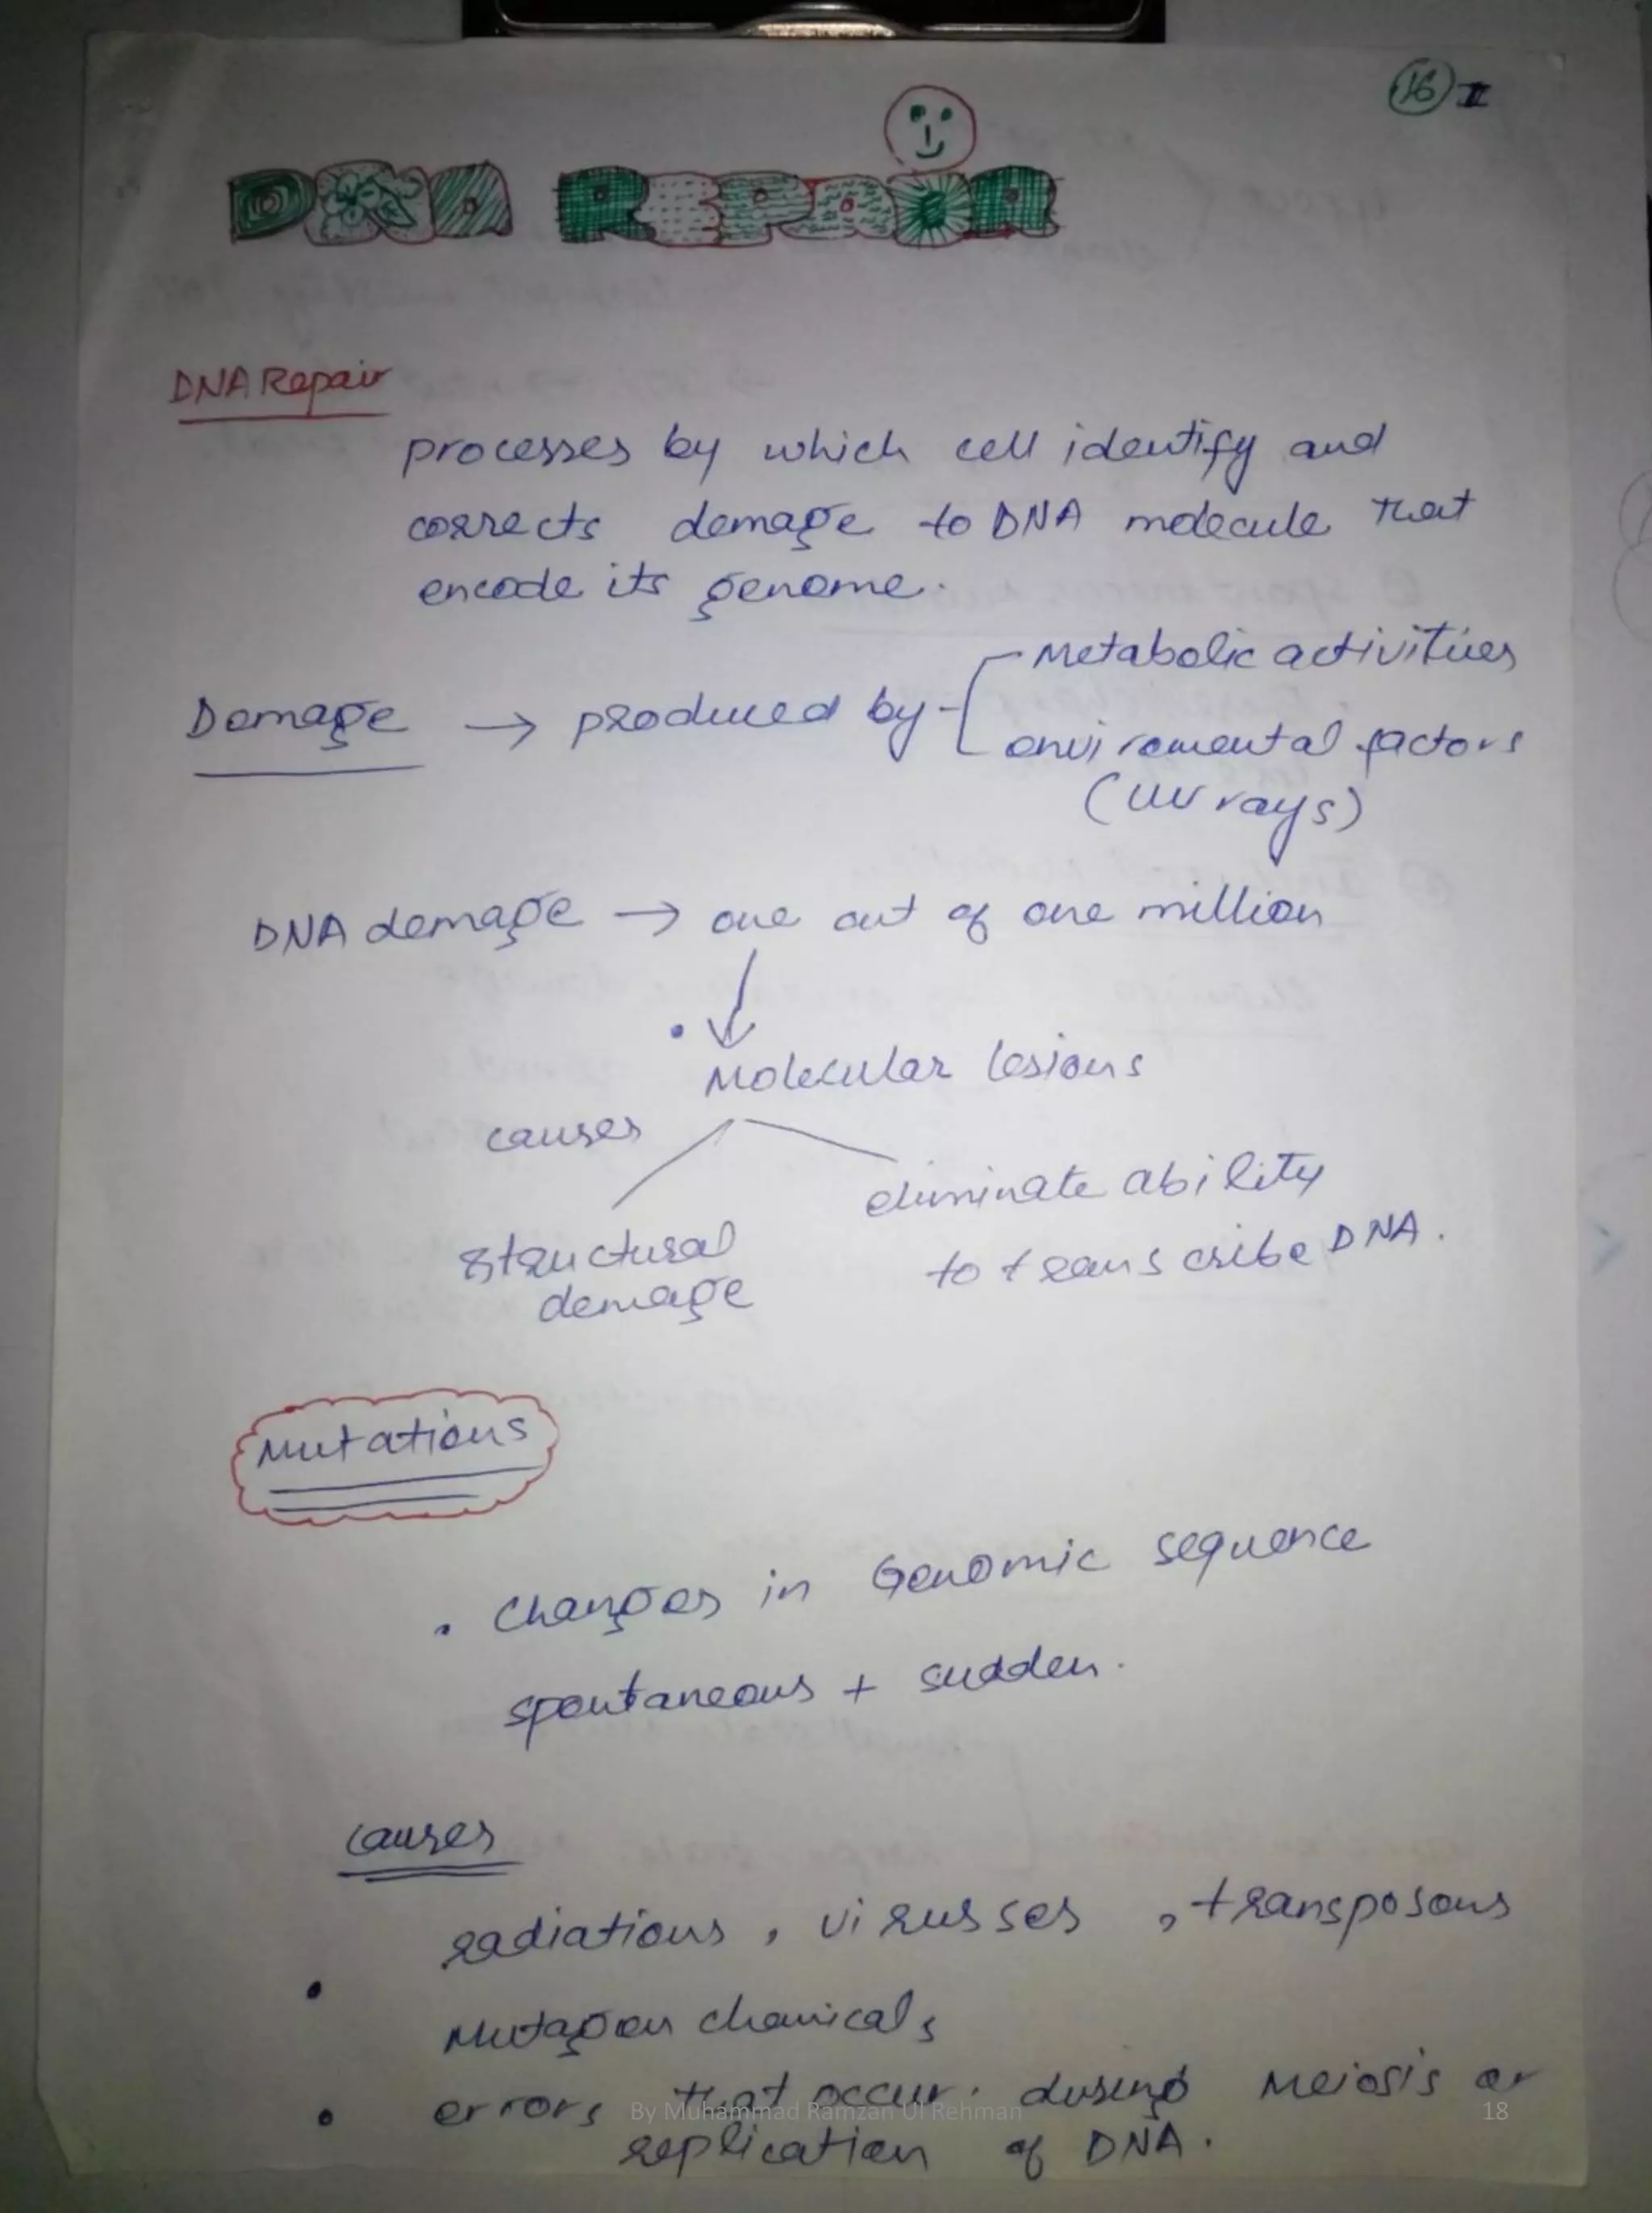 16 I
DNA REPAIR
DNA Repair
processes by which cell identify and
corrects demage to DNA molecule that
encode its genome.
Metabolic activities
Demage → produced by
enviromental factors
(UV rays)
DNA demage → one out of one million
Molecular lesions
causes
eliminate ability
structural
to transcribe DNA.
demage
Mutations
• Changes in Genomic sequence
spontaneous + sudden.
causes
• radiations, virusses, transposons
Mutagen chemicals
• errors that occur during Meiosis or
By Muhammad Ramzan Ul Rehman 18
replication of DNA.